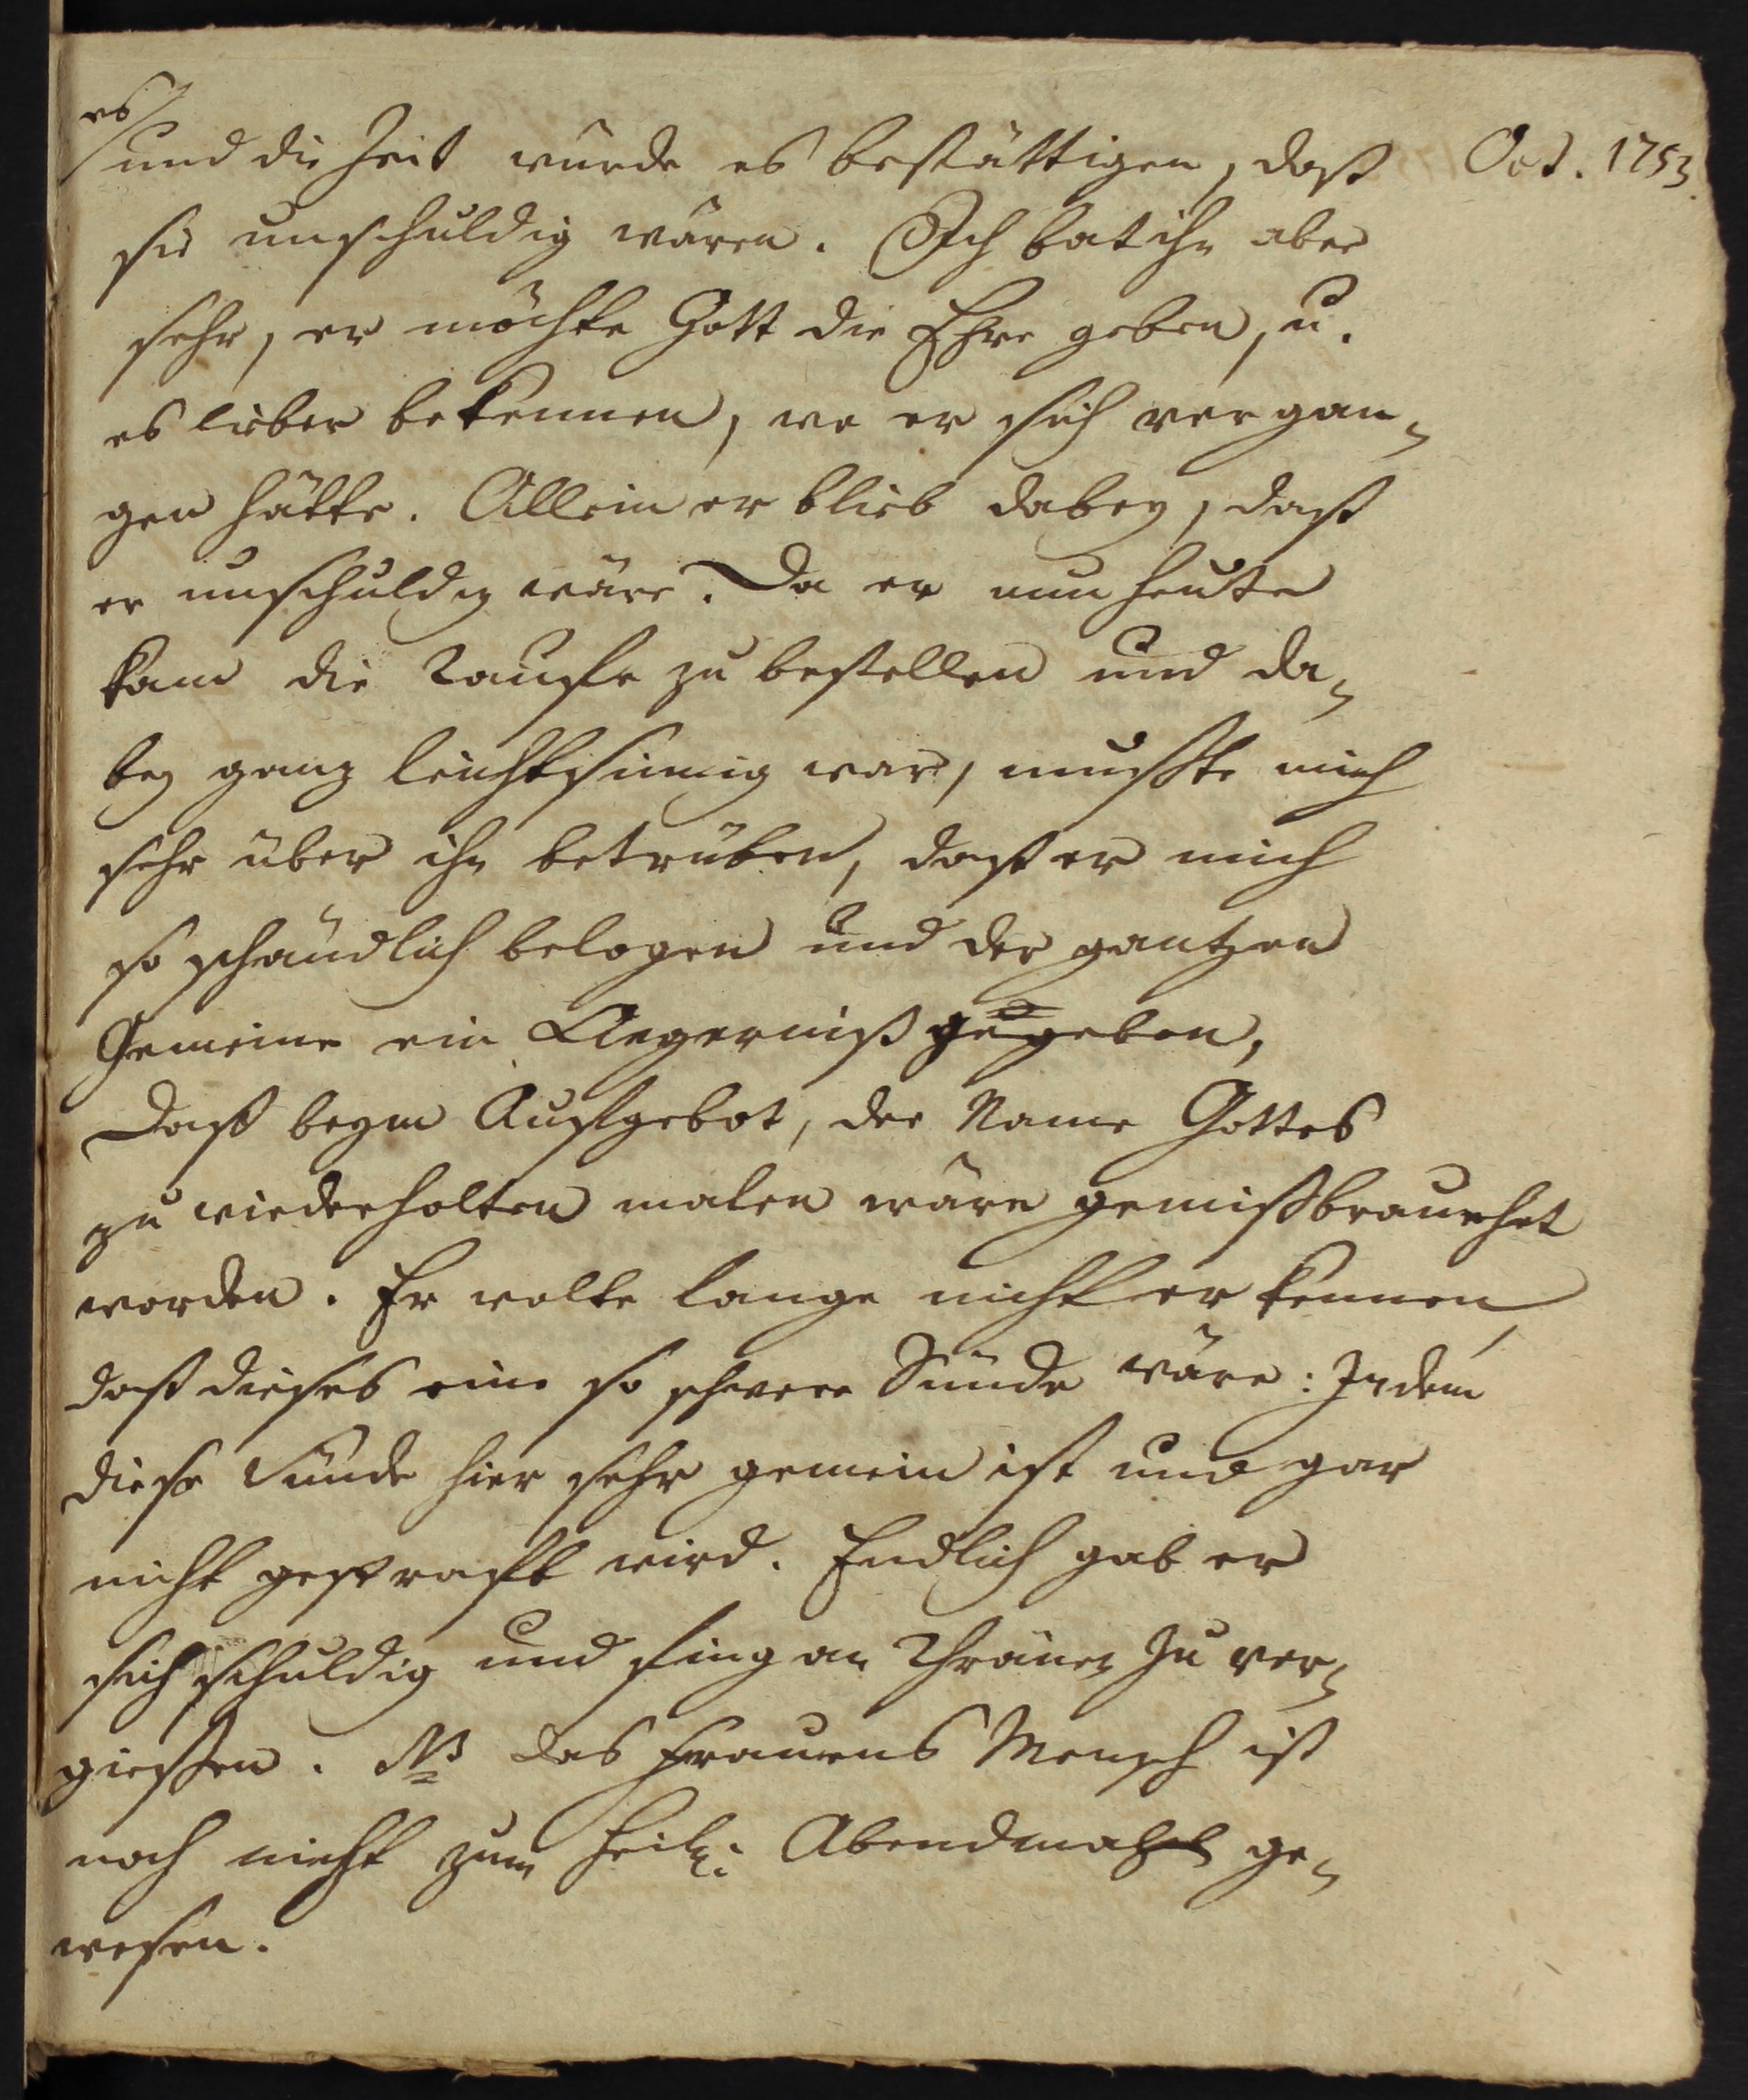 es
und die Zeit würde es bestättigen, daß
Oct. 1753.
sie unschuldig wären. Ich bat ihn aber
sehr, er möchte Gott die Ehre geben, u.
es lieber bekennen, wo er sich vergan-
gen hätte. Allein er blieb dabey, daß
er unschuldig wäre. Da er nun heute
kam die Taufe zu bestellen und da-
bey ganz leichtsinnig war, mußte mich
sehr über ihn betrüben, daß er mich
so schändlich belogen und der gantzen
Gemeine ein Aegerniß gegeben,
Daß beym Aufgebot, der Name Gottes
zu wiederholten malen wäre gemißbrauchet
worden. Er wolte lange nicht erkennen,
daß dieses eine so schwere Sünde wäre: Indem
diese Sünde hier sehr gemein ist und gar
nicht gestraft wird. Endlich gab er
sich schuldig und fing an Thränen zu ver-
giessen. NB das Frauens Mensch ist
noch nicht zum heil: Abendmahl ge-
wesen.